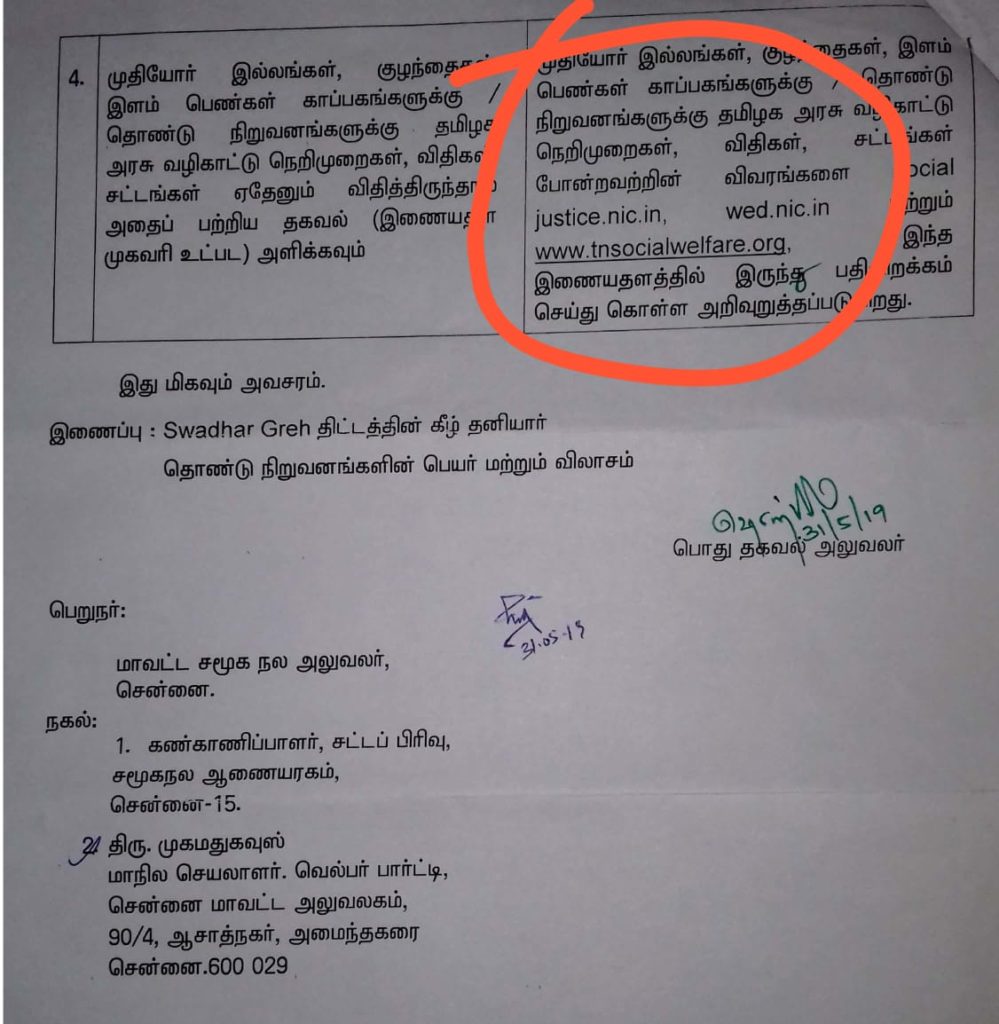 4.
முதியோர் இல்லங்கள், குழந்தைகள்
இளம் பெண்கள் காப்பகங்களுக்கு /
தொண்டு நிறுவனங்களுக்கு தமிழக
அரசு வழிகாட்டு நெறிமுறைகள், விதிகள்
சட்டங்கள் ஏதேனும் விதித்திருந்தால்
அதைப் பற்றிய தகவல் (இணையதள
முகவரி உட்பட) அளிக்கவும்
முதியோர் இல்லங்கள், குழந்தைகள், இளம்
பெண்கள் காப்பகங்களுக்கு / தொண்டு
நிறுவனங்களுக்கு தமிழக அரசு வழிகாட்டு
நெறிமுறைகள், விதிகள், சட்டங்கள்
போன்றவற்றின் விவரங்களை social
justice.nic.in, wed.nic.in மற்றும்
www.tnsocialwelfare.org, இந்த
இணையதளத்தில் இருந்து பதிவிறக்கம்
செய்து கொள்ள அறிவுறுத்தப்படுகிறது.
இது மிகவும் அவசரம்.
இணைப்பு : Swadhar Greh திட்டத்தின் கீழ் தனியார்
தொண்டு நிறுவனங்களின் பெயர் மற்றும் விலாசம்
31/5/19
பொது தகவல் அலுவலர்
பெறுநர்:
31.05.19
மாவட்ட சமூக நல அலுவலர்,
சென்னை.
நகல்:
1. கண்காணிப்பாளர், சட்டப் பிரிவு,
சமூகநல ஆணையரகம்,
சென்னை-15.
திரு. முகமதுகவுஸ்
மாநில செயலாளர். வெல்பர் பார்ட்டி,
சென்னை மாவட்ட அலுவலகம்,
90/4, ஆசாத்நகர், அமைந்தகரை
சென்னை.600 029